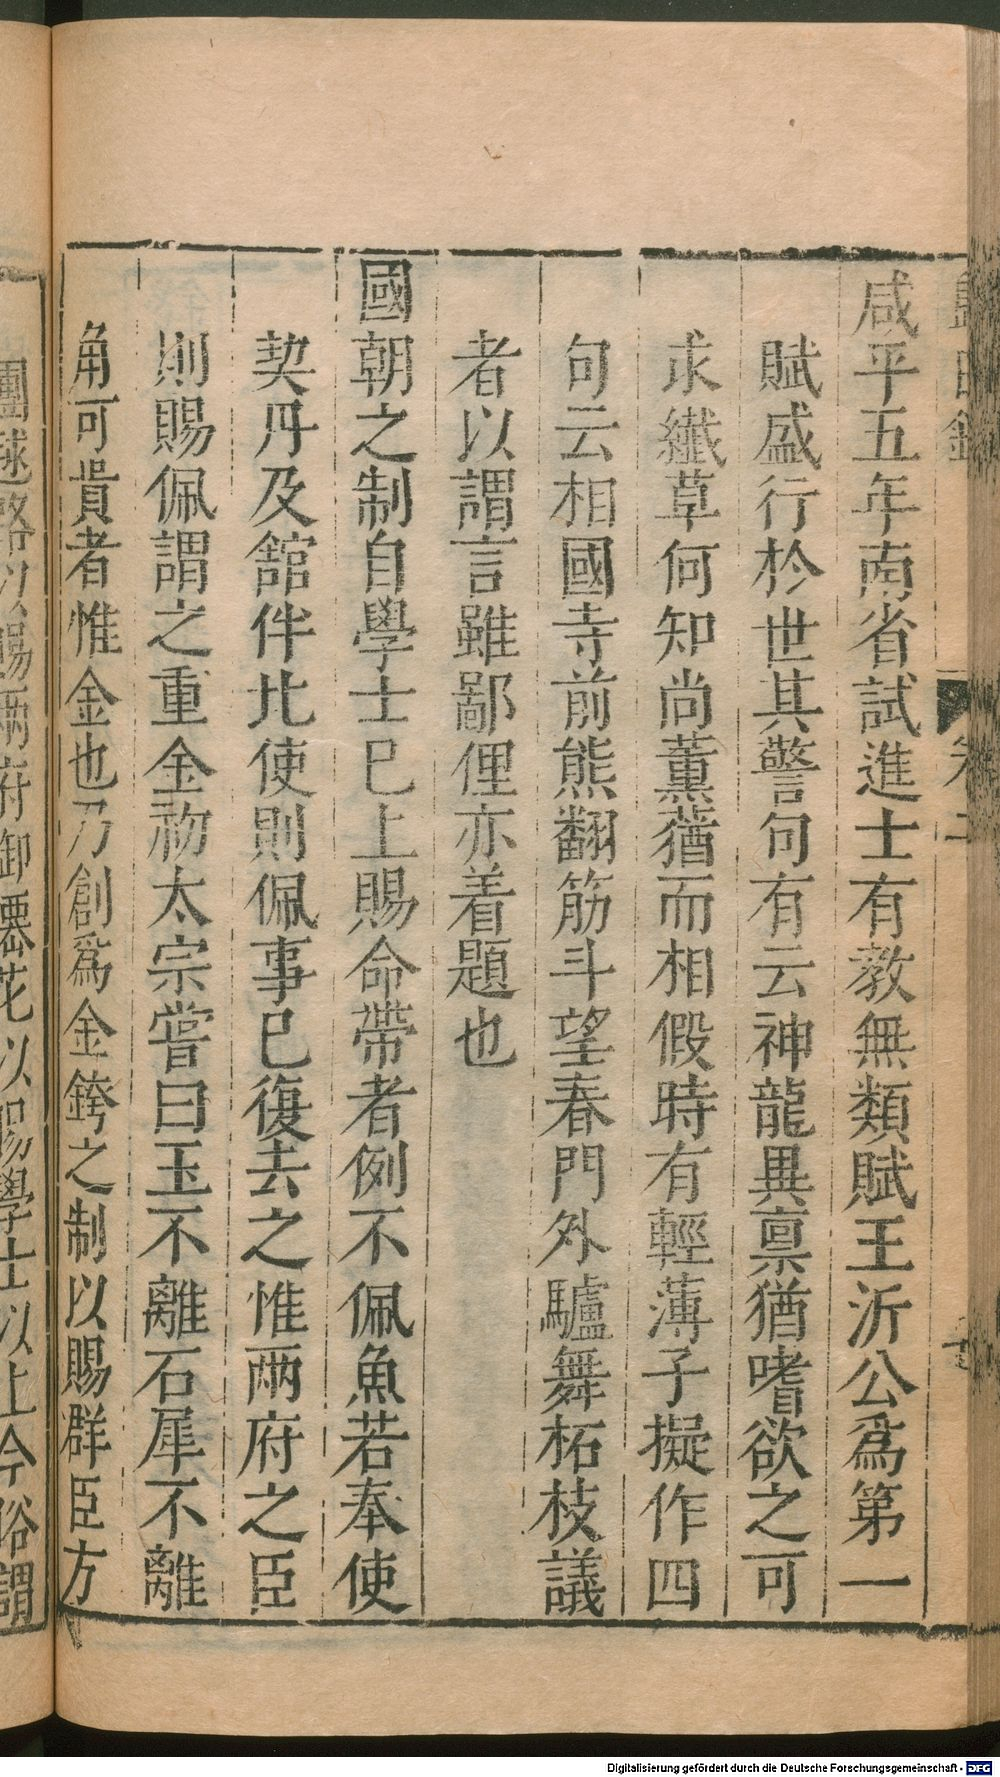 咸平五年南省試進士有教無類賦王沂公爲第一
賦盛行於世其警句有云神龍異禀猶嗜欲之可
求纎草何知尚薰蕕而相假時有輕薄子擬作四
句云相國寺前熊翻筋斗望春門外驢舞柘枝議
者以謂言雖鄙俚亦着題也
國朝之制自學士已上賜命帶者例不佩魚若奉使
契丹及舘伴北使則佩事已復去之惟兩府之臣
則賜佩謂之重金初太宗嘗曰玉不離石犀不離
角可貴者惟金也乃創爲金銙之制以賜群臣方
團毬路以賜兩府御僊花以賜學士以上今俗謂
Digitalisierung gefördert durch die Deutsche Forschungsgemeinschaft - DFG